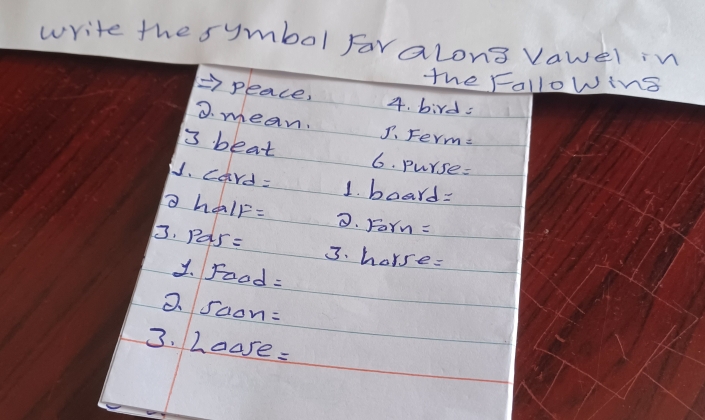 write the symbol For a Long Vawel in
the Following
⇒ peace,
2. mean.
3 beat
4. bird:
5. Ferm=
6. purse=
1. card=
2 half=
3. Pas=
1. board=
2. Forn=
3. horse=
1. Food=
2. soon=
3. Loose=